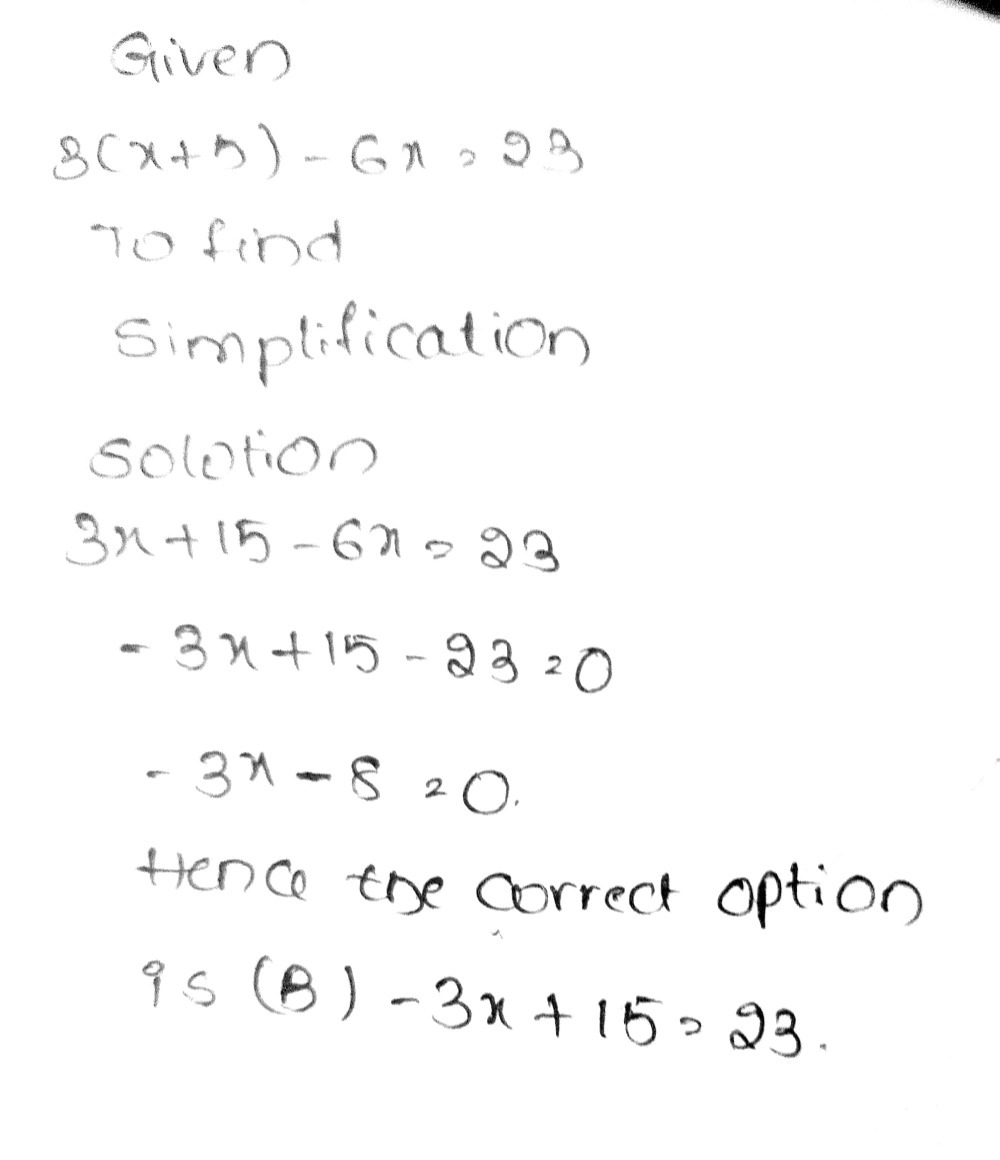 Given
3(x+5)-6x=23
To find
Simplification
Solution
3x+15-6x=23
-3x+15-23=0
-3x-8=0.
Hence the correct option
is (B) -3x+15=23.